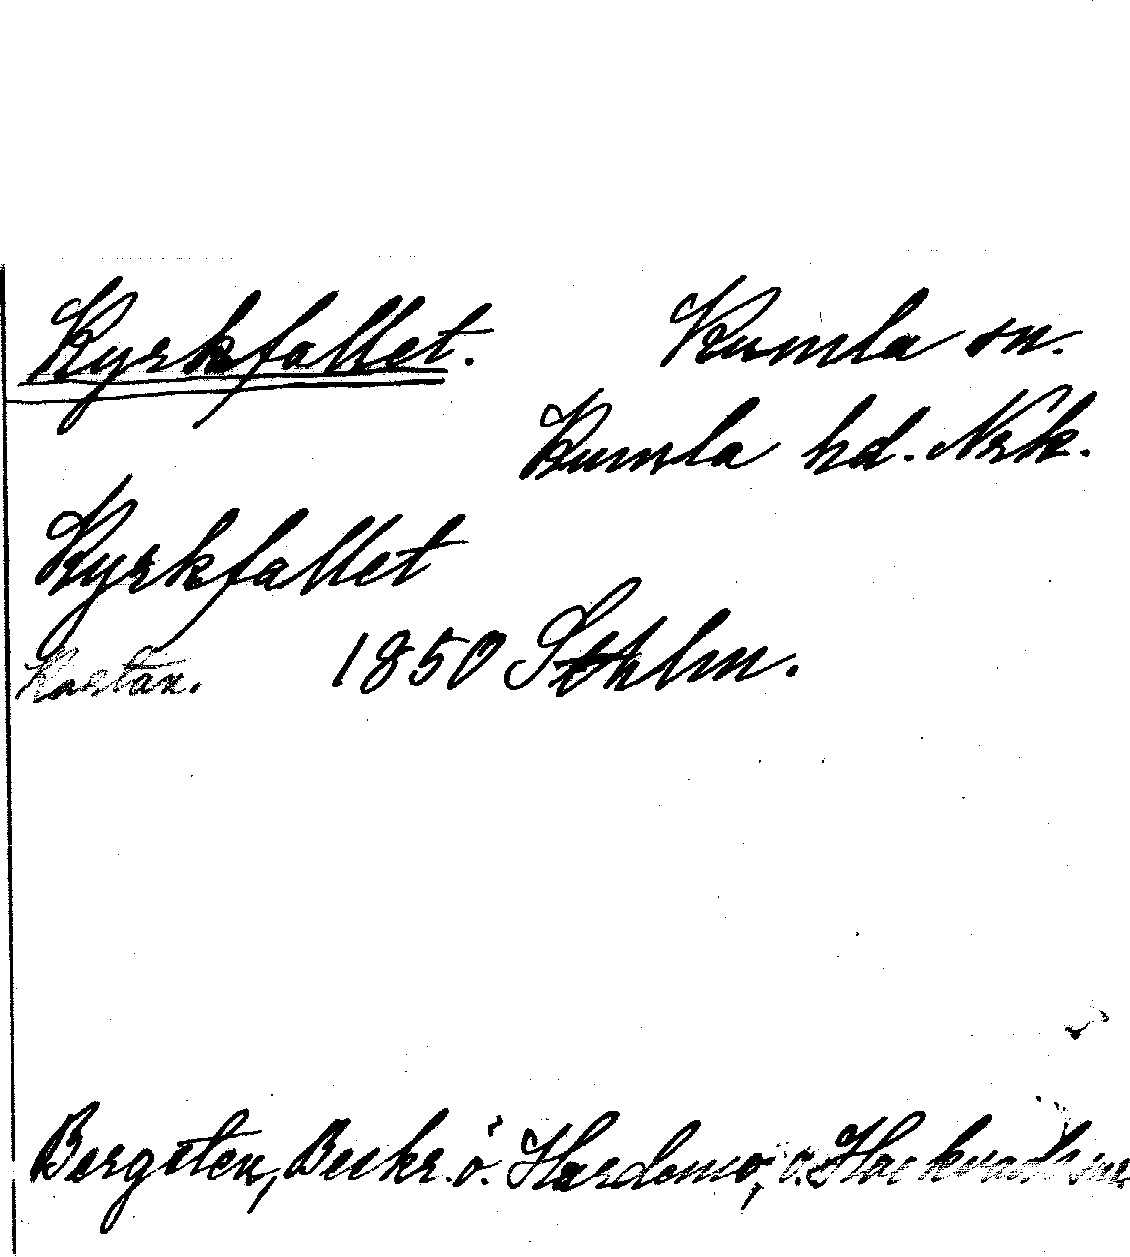 Kyrkfallet. Kumla sn.
Kumla hd. Nrk.
Kyrkfallet
Kartan. 1850 Sthlm.
Bergsten, Beskr. ö. Hardemo, o. Hackvads snr